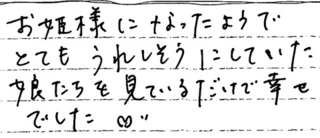 お姫様になったようで
とてもうれしそうにしていた
娘たちを見ているだけで幸せ
でした ♡